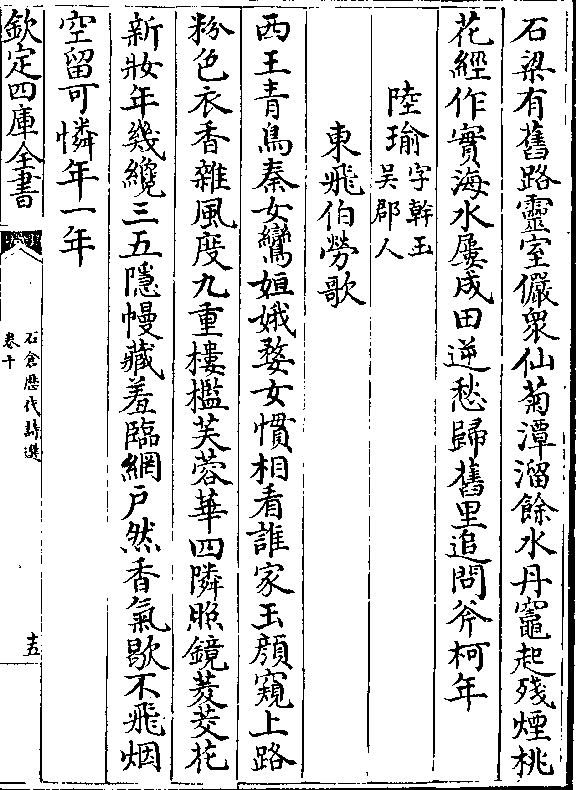 石梁有舊路靈室儼衆仙菊潭溜餘水丹竈起殘煙桃
花經作實海水屢成田逆愁歸舊里追問斧柯年
陸瑜字幹玉
吳郡人
東飛伯勞歌
西王青鳥秦女鸞姮娥婺女慣相看誰家玉顔窺上路
粉色衣香雜風度九重樓檻芙蓉華四隣照鏡菱茭花
新妝年幾纔三五隱幔藏羞臨網戶然香氣歇不飛烟
空留可憐年一年
欽定四庫全書
石倉歷代詩選
卷十
十五